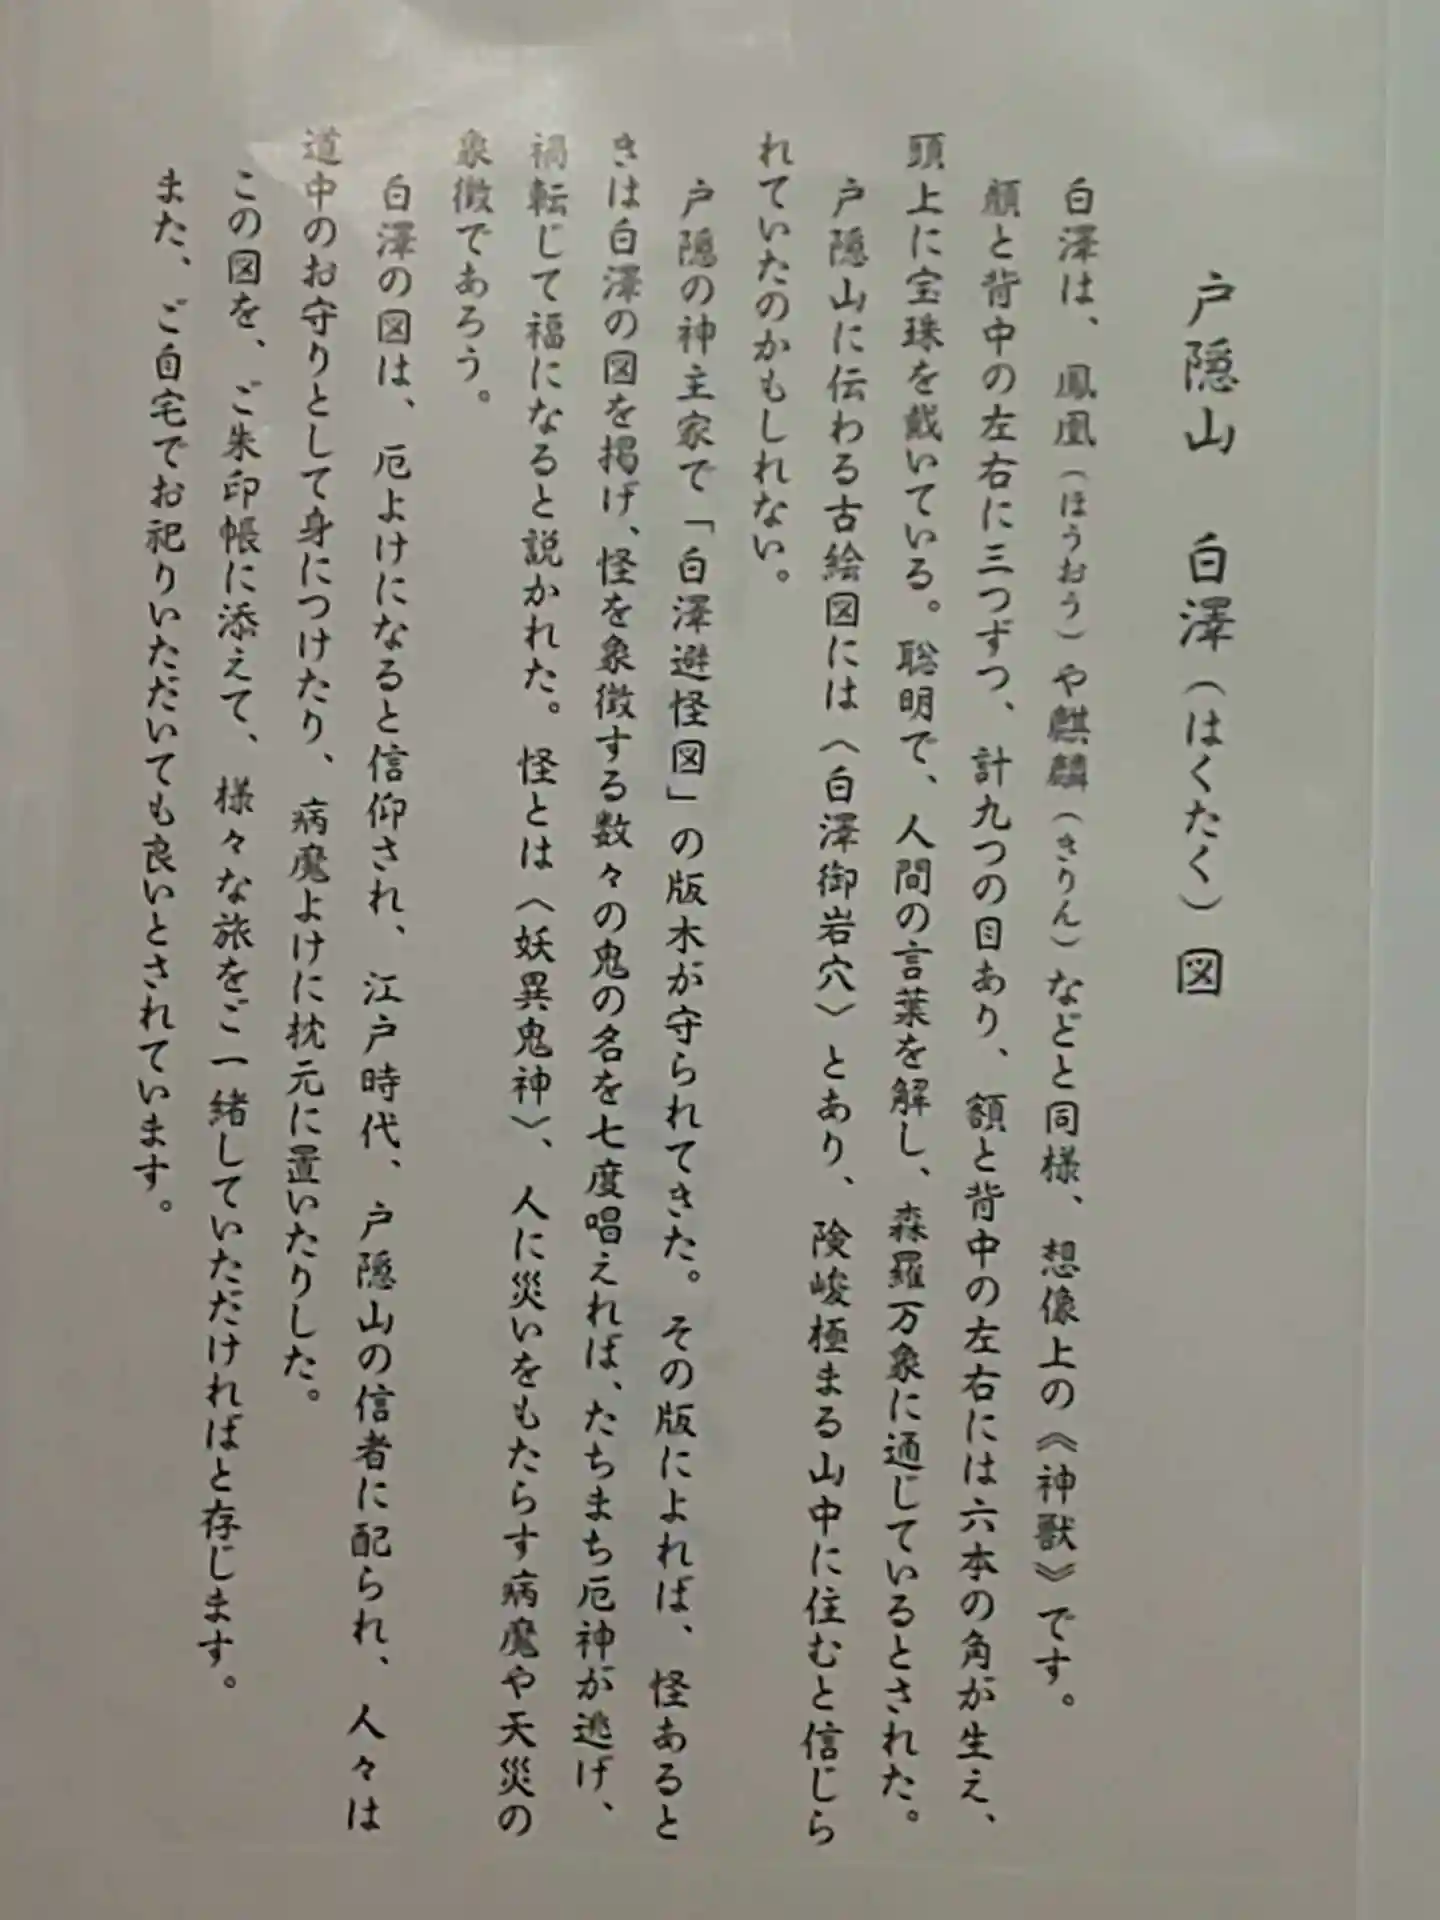 戸隠山　白澤（はくたく）図
白澤は、鳳凰（ほうおう）や麒麟（きりん）などと同様、想像上の《神獣》です。
顔と背中の左右に三つずつ、計九つの目あり、額と背中の左右には六本の角が生え、
頭上に宝珠を戴いている。聡明で、人間の言葉を解し、森羅万象に通じているとされた。
戸隠山に伝わる古絵図には〈白澤御岩穴〉とあり、険峻極まる山中に住むと信じら
れていたのかもしれない。
戸隠の神主家で「白澤避怪図」の版木が守られてきた。その版によれば、怪あると
きは白澤の図を掲げ、怪を象徴する数々の鬼の名を七度唱えれば、たちまち厄神が逃げ、
禍転じて福になると説かれた。怪とは〈妖異鬼神〉、人に災いをもたらす病魔や天災の
象徴であろう。
白澤の図は、厄よけになると信仰され、江戸時代、戸隠山の信者に配られ、人々は
道中のお守りとして身につけたり、病魔よけに枕元に置いたりした。
この図を、ご朱印帳に添えて、様々な旅をご一緒していただければと存じます。
また、ご自宅でお祀りいただいても良いとされています。